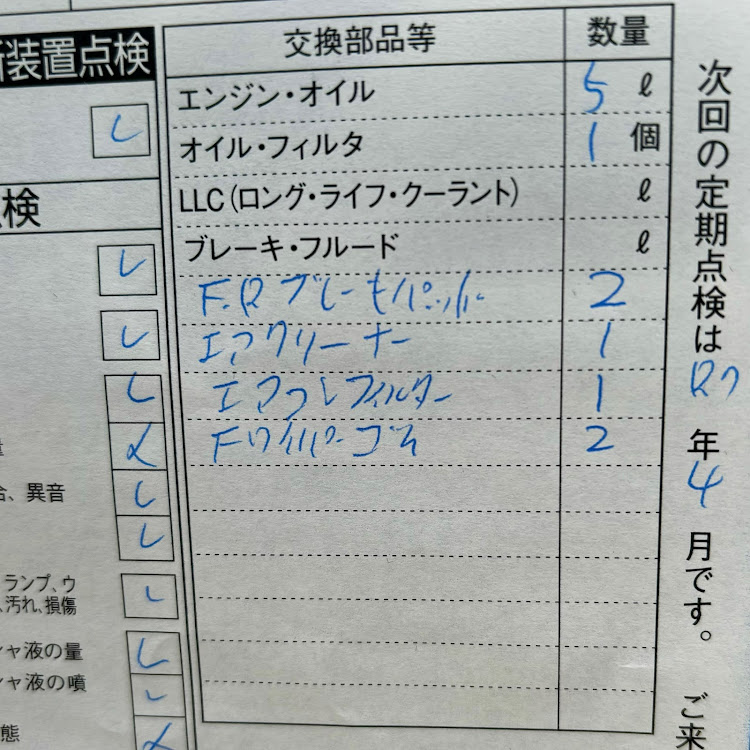 装置点検
検
合、異音
ランプ、ウ
、汚れ、損傷
ャ液の量
ャ液の噴
態
交換部品等 数量
エンジン・オイル 5 ℓ
オイル・フィルタ 1 個
LLC(ロング・ライフ・クーラント) ℓ
ブレーキ・フルード ℓ
F.Rブレーキパッド 2
エアクリーナー 1
エアコンフィルター 1
Fワイパーゴム 2
次回の定期点検はR7年4月です。
ご来